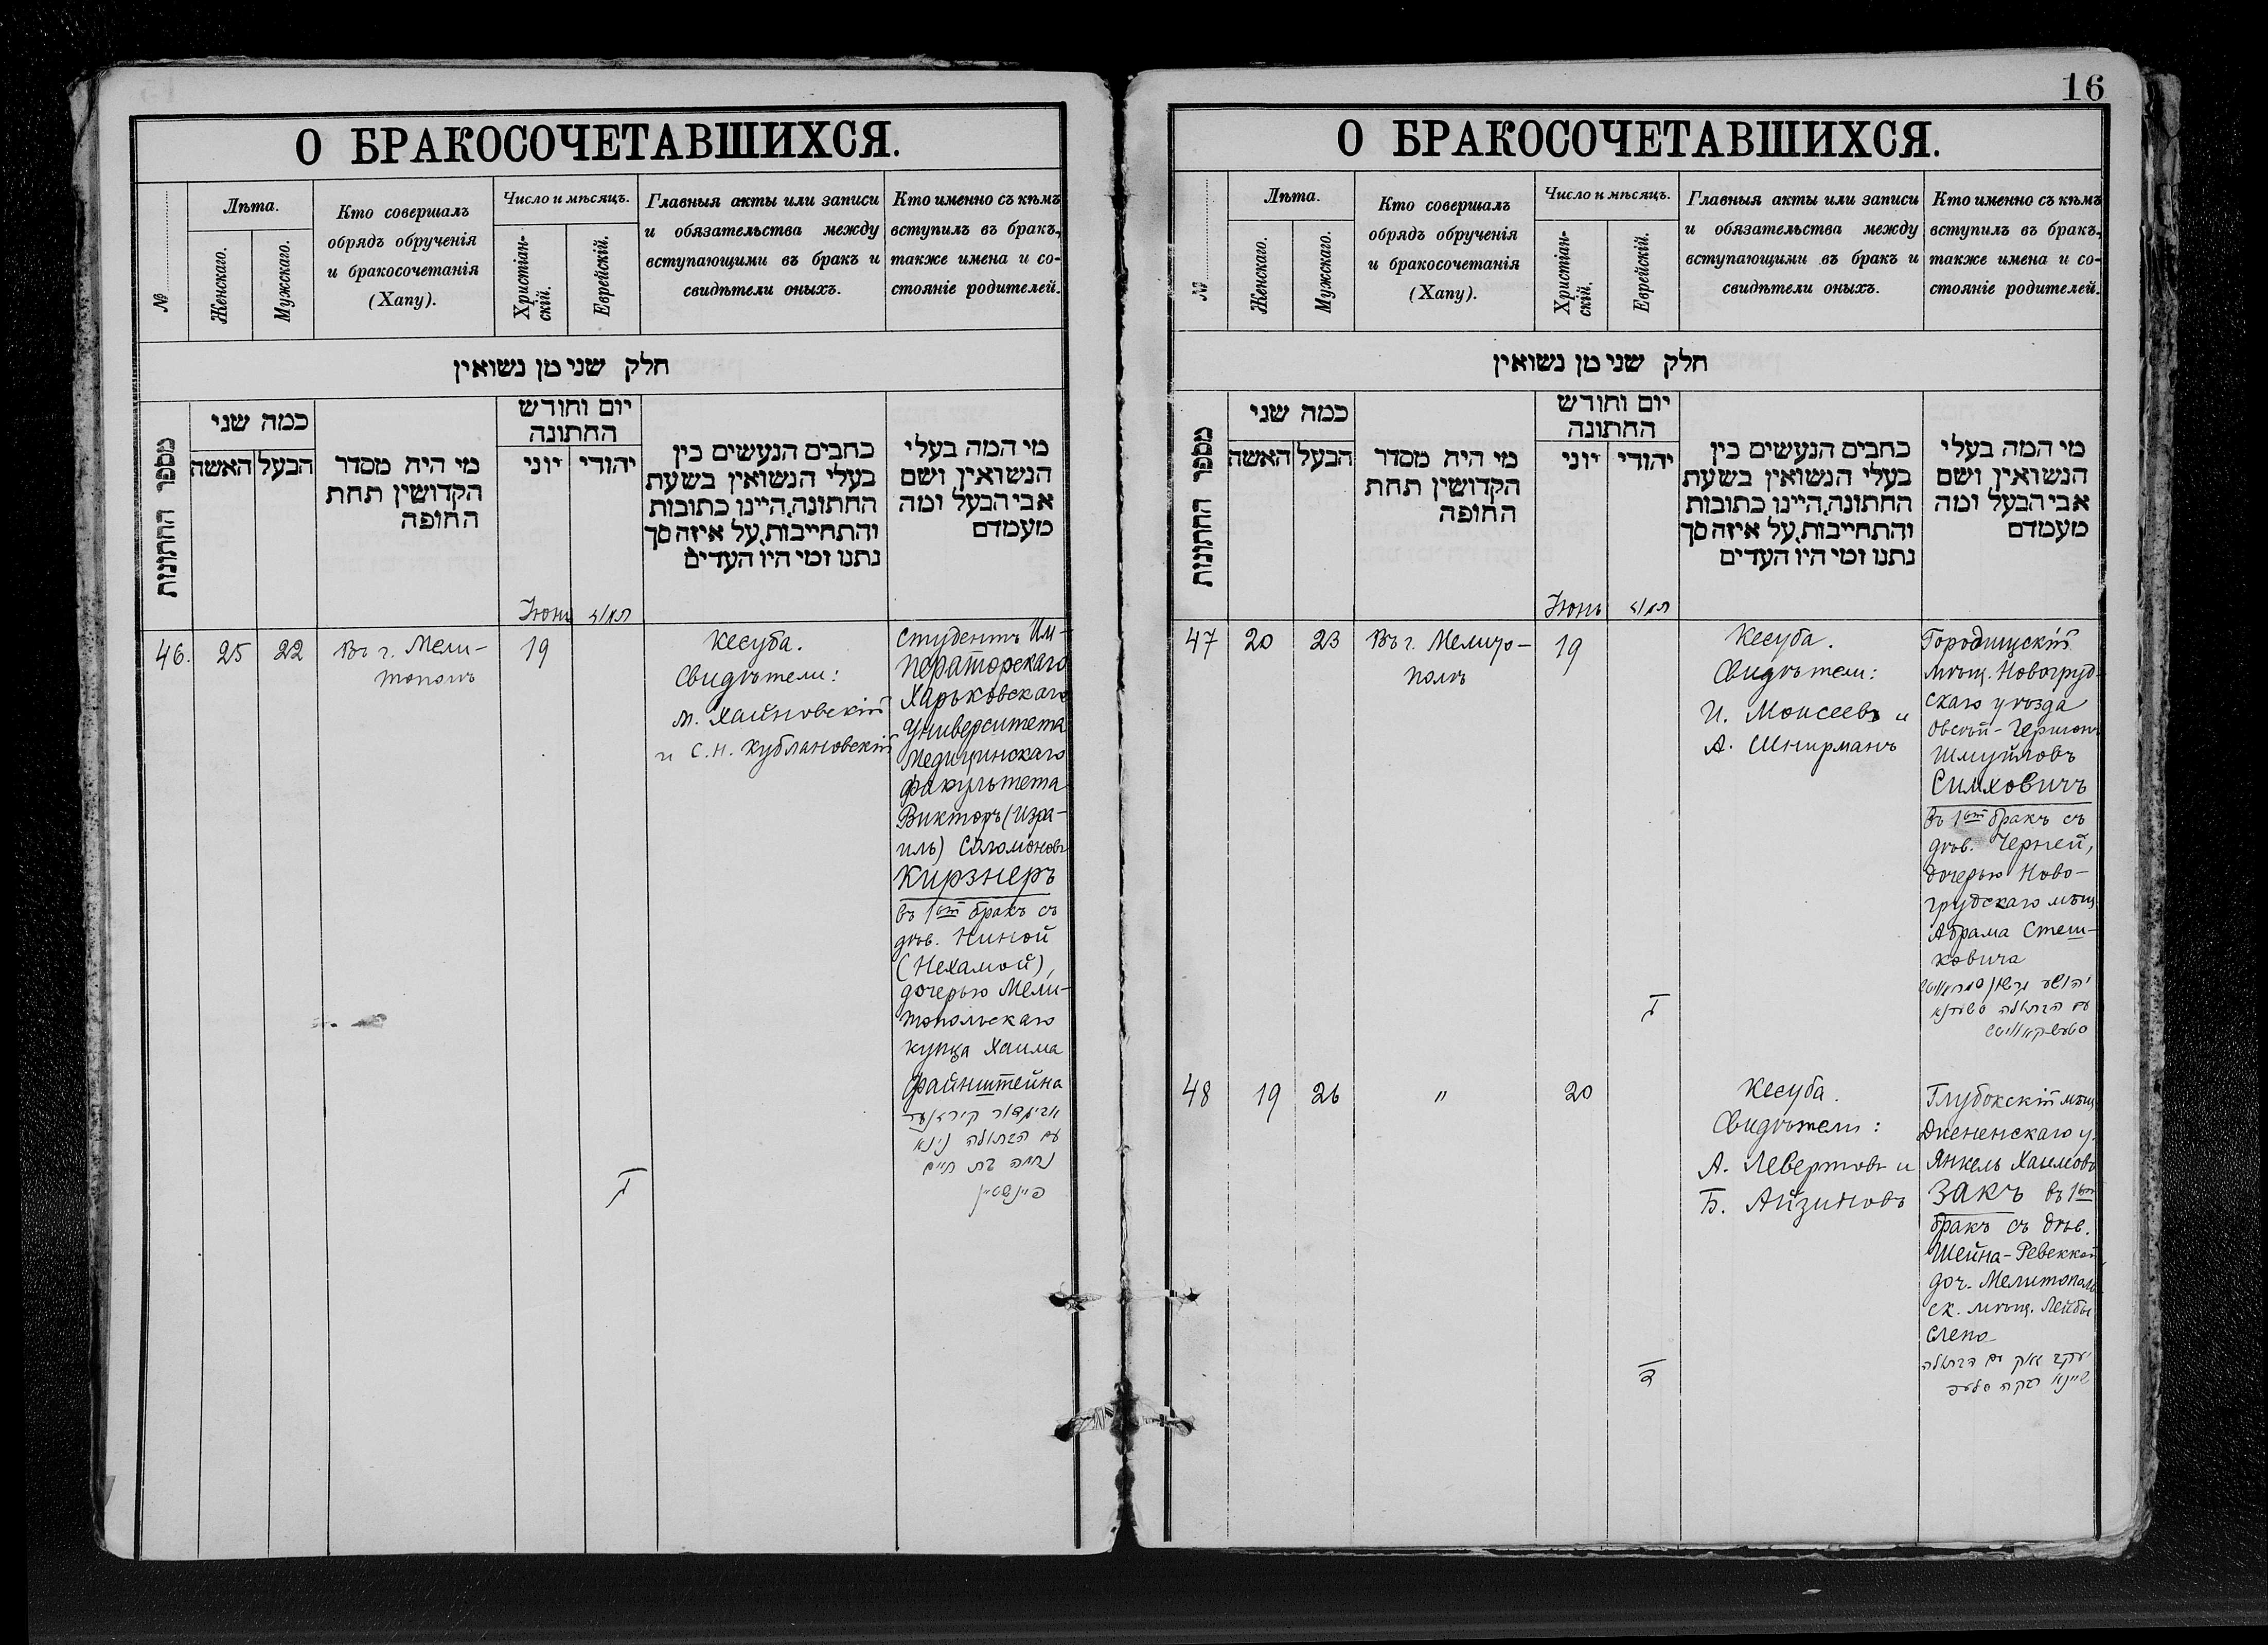 О БРАКОСОЧЕТАВШИХСЯ.
№
Лѣта.
Женскаго.
Мужскаго.
Кто совершалъ
обрядъ обрученія
и бракосочетанія
(Хапу).
Число и мѣсяцъ.
Христіан-
скій.
Еврейскій.
Главныя акты или записи
и обязательства между
вступающими въ бракъ и
свидѣтели оныхъ.
Кто именно съ кѣмъ
вступилъ въ бракъ,
также имена и со-
стояніе родителей.
חלק שני מן נשואין
מספר החתונות
כמה שני
האשה
הבעל
מי היה מסדר
הקדושין תחת
החופה
יום וחודש
החתונה
יוני
יהודי
כתבים הנעשים בין
בעלי הנשואין בשעת
החתונה, היינו כתובות
והתחייבות, על איזה סך
נתנו ומי היו העדים
מי המה בעלי
הנשואין ושם
אבי הבעל ומה
מעמדם
Іюнь
תמוז
46.
25
22
Въ г. Мели-
тополѣ
19
ג
Кесуба.
Свидѣтели:
М. Хайновскій
и С. Н. Кублановскій
Студентъ Им-
ператорскаго
Харьковскаго
Университета
Медицинскаго
факультета
Викторъ (Изра-
иль) Соломоновъ
Кирзнеръ
въ 1ый бракъ съ
дѣв. Ниной
(Нехамой),
дочерью Мели-
топольскаго
купца Хаима
Файнштейна
קירזנער
עם הבתולה נינא
נחמה בת חיים
פיינשטיין
16
О БРАКОСОЧЕТАВШИХСЯ.
№
Лѣта.
Женскаго.
Мужскаго.
Кто совершалъ
обрядъ обрученія
и бракосочетанія
(Хапу).
Число и мѣсяцъ.
Христіан-
скій.
Еврейскій.
Главныя акты или записи
и обязательства между
вступающими въ бракъ и
свидѣтели оныхъ.
Кто именно съ кѣмъ
вступилъ въ бракъ,
также имена и со-
стояніе родителей.
חלק שני מן נשואין
מספר החתונות
כמה שני
האשה
הבעל
מי היה מסדר
הקדושין תחת
החופה
יום וחודש
החתונה
יוני
יהודי
כתבים הנעשים בין
בעלי הנשואין בשעת
החתונה, היינו כתובות
והתחייבות, על איזה סך
נתנו ומי היו העדים
מי המה בעלי
הנשואין ושם
אבי הבעל ומה
מעמדם
Іюнь
תמוז
47
20
23
Въ г. Мелито-
полѣ
19
ג
Кесуба.
Свидѣтели:
И. Моисеевъ и
А. Шнирманъ
Городищскій
мѣщ. Новогруд-
скаго уѣзда
Овсѣй-Гершонъ
Шмуйловъ
Симховичъ
въ 1ый бракъ съ
дѣв. Черней,
дочерью Ново-
грудскаго мѣщ.
Абрама Стеш-
ковича
יהושע גרשון סימחאוויטש
עם הבתולה
48
19
26
"
20
ד
Кесуба.
Свидѣтели:
А. Левертовъ и
Б. Айзиновъ
Глубокскій мѣщ.
Дисненскаго у.
Янкель Хаимовъ
Закъ въ 1ый
бракъ съ дѣв.
Шейна-Ревеккой,
доч. Мелитополь-
ск. мѣщ. Лейбы
Слепо
יעקב זאק עם הבתולה
שיינא רבקה סלעפ